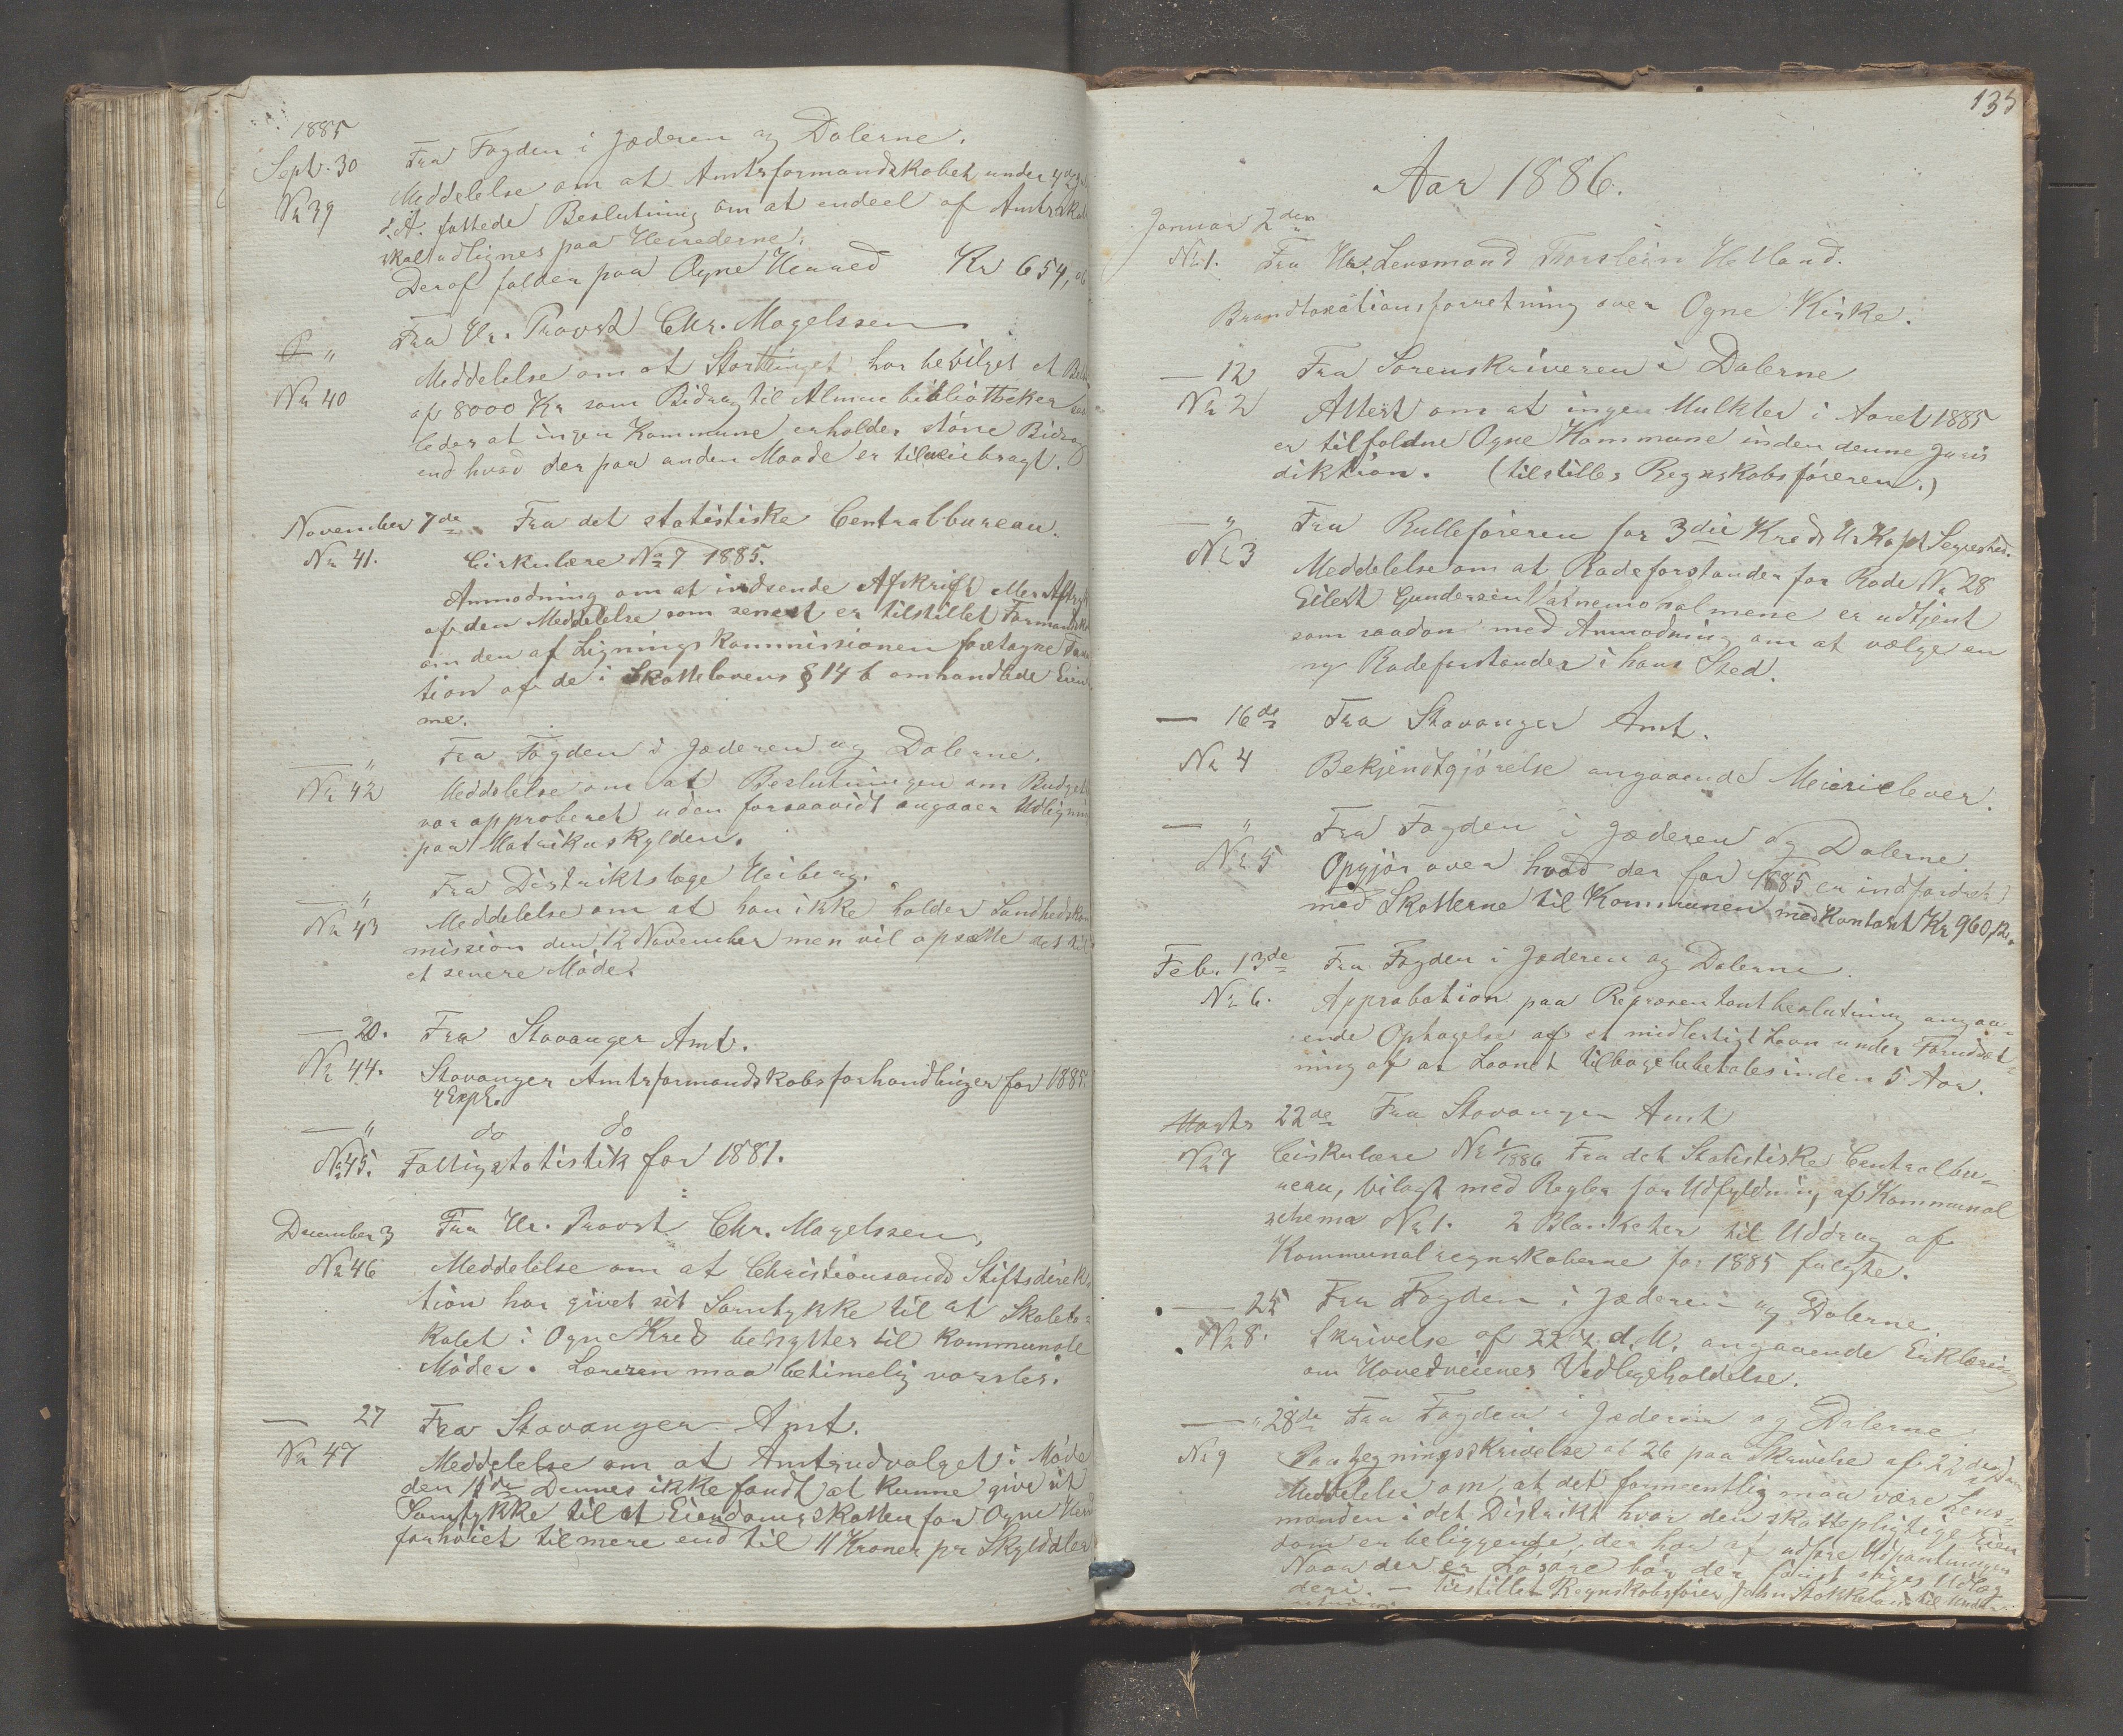 1885
Sept. 30 Fra Fogden i Jæderen og Dalerne.
No 39 Meddelelse om at Amtsformandskabet under
d. A. fattede Beslutning om at endeel af
skal udlignes paa Herrederne.
Deraf falder paa Ogne Herred Kr 654,
" Fra Hr. Provst Chr. Magelssen
No 40 Meddelelse om at Storthinget har bevilget et
af 8000 Kr som Bidrag til Almue bibliotheker
ledes at ingen Kommune erholder större Bidrag
end hvad der paa anden Maade er tilveiebragt.
November 7de Fra det statistiske Centralbureau.
No 41. Cirkulære No 7 1885.
Anmodning om at indsende Afskrift eller
af den Meddelelse som senest er tilstillet
om den af Ligningskommissionen foretagne
tion af de i Skattelovens § 14 b omhandlede
me.
— " Fra Fogden i Jæderen og Dalerne.
No 42 Meddelelse om at Beslutningen om
var approberet uden forsaavidt angaaer
paa Matrikuskylden.
— " Fra Distriktslæge Heiberg.
No 43 Meddelelse om at han ikke holder
mission den 12 November men vil opsætte det til
et senere Möde.
— 20. Fra Stavanger Amt.
No 44. Stavanger Amtsformandskabsforhandlinger for 1885.
4 Expl.
— " do do
No 45. Fattigstatistik for 1881.
December 3 Fra Hr. Provst Chr. Magelssen,
No 46 Meddelelse om at Christiansands Stiftsdirek
tion har givet sit Samtykke til at Skolelo-
kalet i Ogne Kreds benyttes til kommunale
Möder. Læreren maa betimelig varsles.
— 27 Fra Stavanger Amt.
No 47 Meddelelse om at Amtsudvalget i Möde
den 11de Dennes ikke fandt at kunne give sit
Samtykke til at Eiendomsskatten for Ogne
forhöiet til mere end til 11 Kroner pr Skylddaler
135
Aar 1886.
Januar 2den
No 1. Fra Hr. Lensmand Thorstein Hetland.
Brandtaxationsforretning over Ogne Kirke.
— 12 Fra Sorenskriveren i Dalerne
No 2 Attest om at ingen Mulkter i Aaret 1885
er tilfaldne Ogne Kommune inden denne Juris
diktion. (tilstilles Regnskabsföreren.)
— " Fra Rulleföreren for 3die Kreds Hr Kapt
No 3 Meddelelse om at Rodeforstander for Rode No 28
Eilert Gundersen er udtjent
som saadan med Anmodning om at vælge en
ny Rodeforstander i hans Sted.
— 16de Fra Stavanger Amt.
No 4 Bekjendtgjörelse angaaende Meierielever.
— " Fra Fogden i Jæderen og Dalerne
No 5 Opgjör over hvad der for 1885 er indfordret
med Skatterne til Kommunen med Kontant Kr 960,12.
Feb. 13de Fra Fogden i Jæderen og Dalerne.
No 6. Approbation paa Repræsentantbeslutning angaa-
ende Optagelse af et midlertigt Laan under Forudsæt-
ning af at Laanet tilbagebetales inden 5 Aar.
Marts 22de Fra Stavanger Amt
No 7 Cirkulære No 1/1886 Fra det Statistiske Centralbu-
reau, bilagt med Regler for Udfyldning af Kommunal
schema No 1. 2 Blanketter til Uddrag af
Kommunalregnskaberne for 1885 fulgte.
— 25 Fra Fogden i Jæderen og Dalerne
No 8. Skrivelse af 22de d. M. angaaende Erklæring
om Hovedveienes Vedligeholdelse.
— " 28de Fra Fogden i Jæderen og Dalerne.
No 9 Paategningsskrivelse af 26 paa Skrivelse af 22de
Meddelelse om, at det formeentlig maa være Lens-
manden i det Distrikt hvor den skattepligtige Eien
dom er beliggende, der har at udföre Udpantningen
Naar der er Lösöre bör der först söges Udlæg
deri. — Tilstillet Regnskabsförer John Stokkeland til